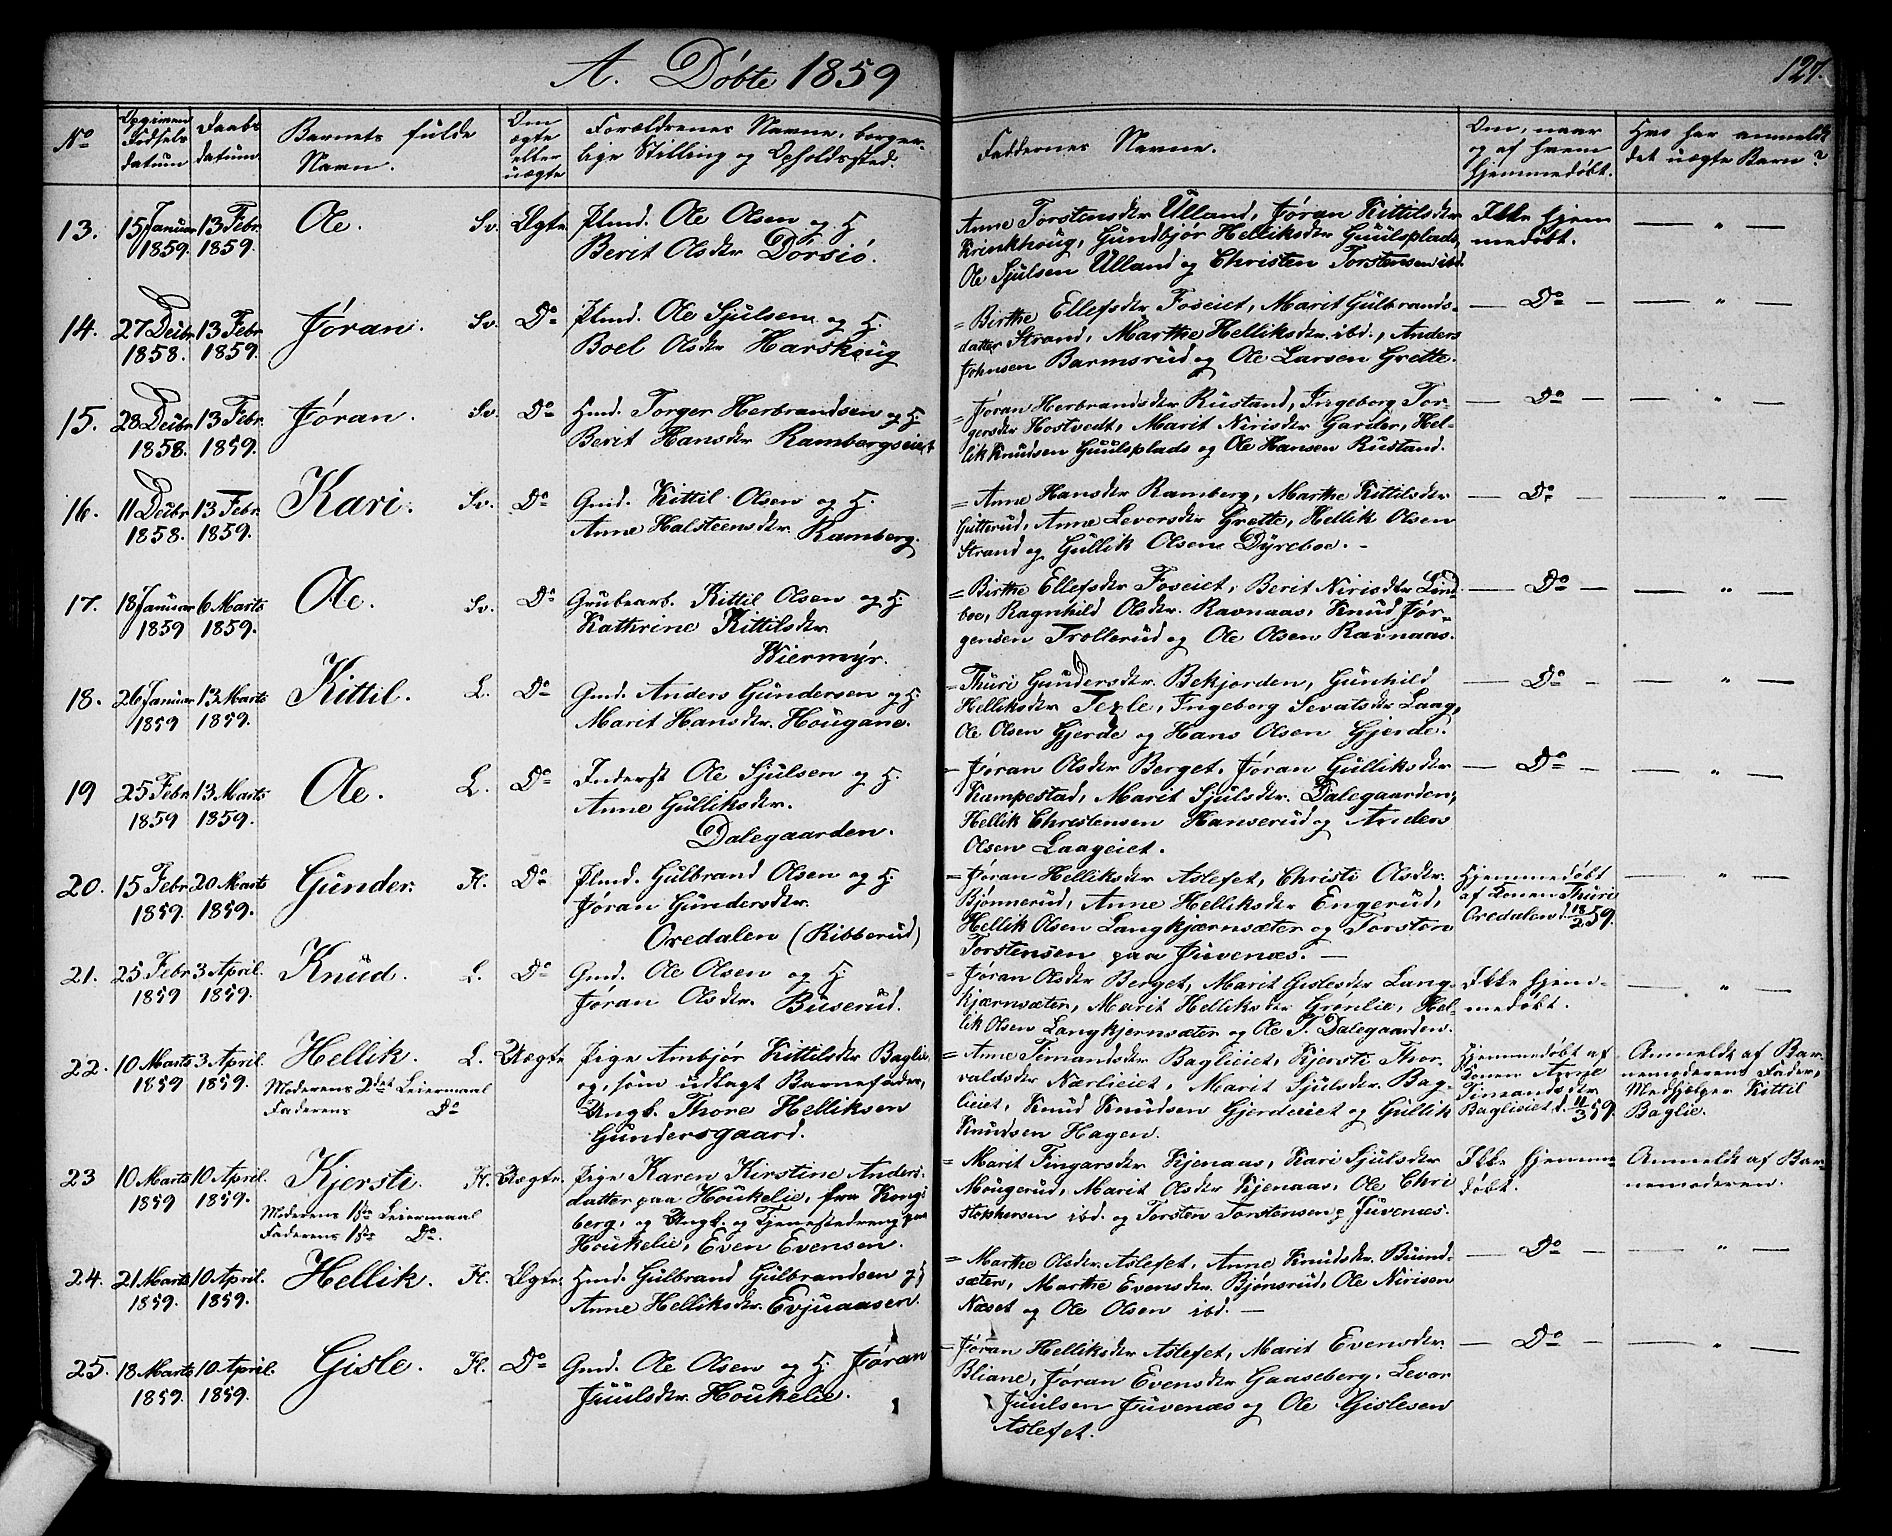 A. Døbte 1859
127.
No
Opgiven Fødsels datum
Daabs datum.
Barnets fulde Navn.
Om ægte eller uægte
Forældrenes Navne, borgerlige Stilling og Opholdssted.
Faddernes Navne.
Om, naar og af hvem hjemmedøbt.
Hvo har anmeldt det uægte Barn?
13. 15 Januar 1859. 13 Febr. 1859. Ole. Sv. Ægte.
Plmd. Ole Olsen og H.
Berit Olsdtr. Dörsiö.
Anne Torstensdtr Ulland, Jøran Kittilsdtr
Krinkhoug, Gundbjør Helliksdtr Guulsplads,
Ole Sjulsen Ulland og Christen Torstensen ibd.
Ikke hjem
medøbt.
— " —
14. 27 Decbr. 1858. 13 Febr. 1859. Jøran. Sv. Do
Plmd. Ole Sjulsen og H.
Boel Olsdtr Harskoug
= Birthe Ellefsdtr Foseiet, Marit Gulbrands-
datter Strand, Marthe Helliksdtr. ibd., Anders
Johnsen Barmsrud og Ole Larsen Grette.
— Do —
— " —
15. 28 Decbr. 1858. 13 Febr. 1859. Jøran. Sv. Do
Hmd. Torger Herbrandsen og H.
Berit Hansdtr Rambergseiet
= Jøran Herbrandsdtr Rustand, Ingeborg Tor-
gersdtr Hostvedt, Marit Nirisdtr Garder, Hel-
lik Knudsen Guulsplads og Ole Hansen Rustand.
— Do —
— " —
16. 11 Decbr. 1858. 13 Febr. 1859. Kari. Sv. Do
Gmd. Kittil Olsen og H.
Anne Halsteensdtr. Ramberg.
= Anne Hansdtr Ramberg, Marthe Kittilsdtr
Gutterud, Anne Levorsdtr Grette, Hellik Olsen
Strand og Gullik Olsen Dyreboe. -
— Do —
— " —
17. 18 Januar 1859 6 Marts 1859. Ole. Sv. Do
Grubearb. Kittil Olsen og H.
Kathrine Kittilsdtr.
Kiermyr.
= Birthe Ellefsdtr Foseiet, Berit Nirisdtr Lind
boe, Ragnhild Olsdtr. Ravnaas, Knud Jør-
gensen Trollerud og Ole Olsen Ravnaas.
— Do —
— " —
18. 26 Januar 1859 13 Marts 1859. Kittil. L. Do
Gmd. Anders Gundersen og H
Marit Hansdtr. Hougane.
= Thuri Gundersdtr. Bekjorden, Gunhild
Helliksdtr Teple, Ingeborg Sevatsdtr Laag,
Ole Olsen Gjerde og Hans Olsen Gjerde.
— Do —
— " —
19 25 Febr 1859 13 Marts 1859. Ole. L. Do
Inderst Ole Sjulsen og H.
Anne Gulliksdtr.
Dalegaarden.
- Jøran Olsdtr Berget, Jøran Gulliksdtr
Kampestad, Marit Sjulsdtr. Dalegaarden,
Hellik Christensen Hanserud og Anders
Olsen Laageiet.
— Do —
— " —
20. 15 Febr 1859. 20 Marts 1859. Gunder. H. Do
Plmd. Gulbrand Olsen og H
Jøran Gundersdtr.
Oredalen (Ribberud)
= Jøran Helliksdtr Aslefet, Christi Olsdtr.
Bjønnerud, Anne Helliksdtr Engerud,
Hellik Olsen Langkjærnsæter og Torsten
Torstensen paa Juvenæs. —
Hjemmedøbt
af Konen Thuri
Oredalen d. 18/2 59.
— " —
21. 25 Febr 1859 3 April. 1859. Knud. L. Do
Gmd. Ole Olsen og H.
Jøran Olsdtr. Buserud.
= Jøran Olsdtr Berget, Marit Gislesdtr Lang-
kjærnsæter, Marit Helliksdtr Grørelie, Hel-
lik Olsen Langkjernsæter og Ole S. Dalegaarden.
Ikke hjem-
medøbt.
— " —
22. 10 Marts 1859 3 April. 1859. Hellik. L. Uægte
Moderens 2det Leiermaal
Faderens Do
Pige Ambjør Kittilsdtr Baglie,
og, som udlagt Barnefader,
Ungk. Thore Helliksen
Gundersgaard.
= Anne Timandsdtr Baglieiet, Kjersti Thor-
valdsdtr Nærlieiet, Marit Sjulsdtr. Bag-
lieiet, Knud Knudsen Gjerdeiet og Gullik
Knudsen Hagen.
Hjemmedøbt af
Konen
Timandsdtr
Baglieiet d. 11/3 59.
Anmeldt af Bar-
nemoderens Fader,
Medhjelper Kittil
Baglie.
23 10 Marts 1859 10 April. 1859. Kjersti. H. Uægte.
Moderens 1ste Leiermaal
Faderens 1ste Do.
Pige Karen Kirstine Anders-
datter paa Houkelie, fra Kongs
berg, og Ungk. og Tjenestedreng paa
Houkelie, Even Evensen.
= Marit Tingarsdtr Kjenaas, Kari Sjulsdtr
Mougerud, Marit Olsdtr Kjenaas, Ole Chri
stophersen ibd. og Torsten Torstensen p Juvenæs.
Ikke hjemme-
døbt.
Anmeldt af Bar-
nemoderen.
24. 21 Marts 1859. 10 April. 1859. Hellik. H. Ægte.
Hmd. Gulbrand Gulbrandsen og H
Anne Helliksdtr. Evjuaasen.
= Marthe Olsdtr Aslefet, Anne Knudsdtr. Buind-
sæter, Marthe Evensdtr. Bjønsrud, Ole Nirisen
Næset og Ole Olsen ibd. —
— Do —
— " —
25. 18 Marts 1859. 10 April. 1859. Gisle. H. Do
Gmd. Ole Olsen og H. Jøran
Juulsdtr. Houkelie.
= Jøran Helliksdtr Aslefet, Marit Evensdtr.
Bliane, Jøran Evensdtr Gaaseberg, Levor
Juulsen Juvenæs og Ole Gislesen
Aslefet.
— Do —
— " —